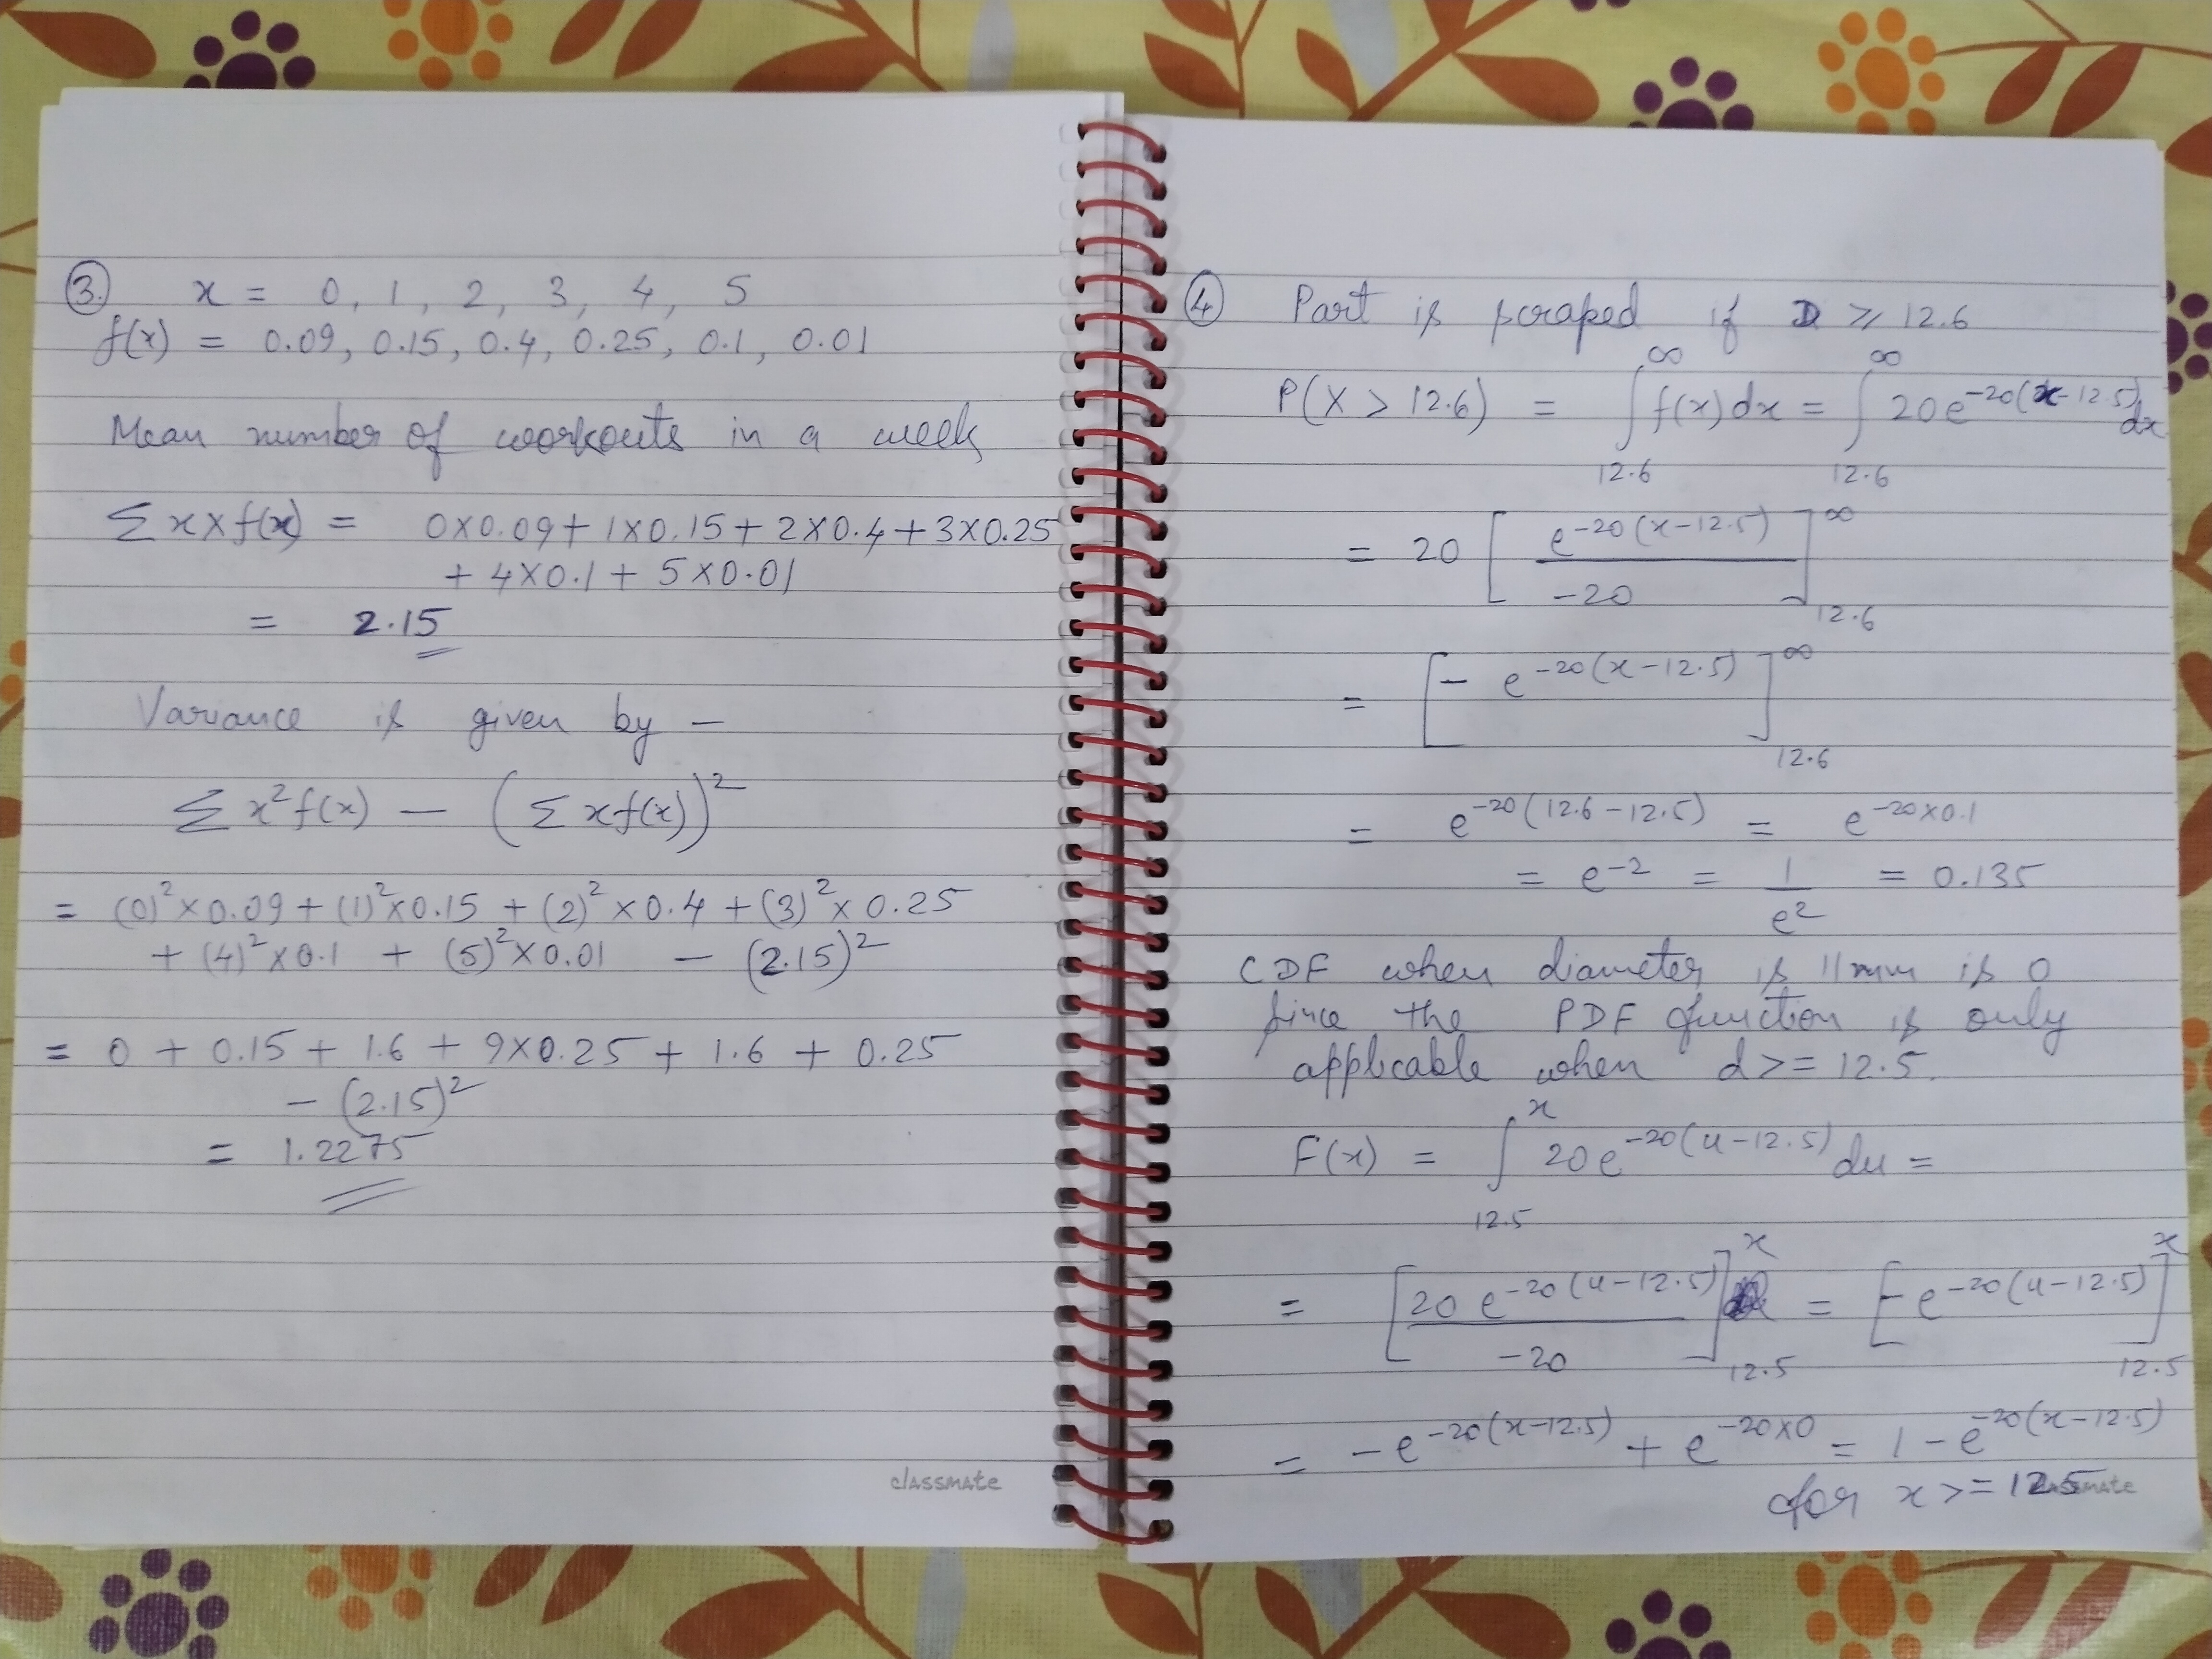 ③ x = 0, 1, 2, 3, 4, 5
f(x) = 0.09, 0.15, 0.4, 0.25, 0.1, 0.01
Mean number of workouts in a week
∑ x x f(x) = 0x0.09 + 1x0.15 + 2x0.4 + 3x0.25
+ 4x0.1 + 5x0.01
= 2.15
Variance is given by -
∑ x² f(x) - (∑ x f(x))²
= (0)² x 0.09 + (1)² x 0.15 + (2)² x 0.4 + (3)² x 0.25
+ (4)² x 0.1 + (5)² x 0.01 - (2.15)²
= 0 + 0.15 + 1.6 + 9x0.25 + 1.6 + 0.25
- (2.15)²
= 1.2275
classmate
④ Part is scraped if D ≥ 12.6
P(X > 12.6) = ∫_{12.6}^{∞} f(x) dx = ∫_{12.6}^{∞} 20 e^{-20(x-12.5)} dx
= 20 [ e^{-20(x-12.5)} / -20 ]_{12.6}^{∞}
= [ - e^{-20(x-12.5)} ]_{12.6}^{∞}
= e^{-20(12.6-12.5)} = e^{-20x0.1}
= e^{-2} = 1/e² = 0.135
CDF when diameter is 11mm is 0
since the PDF function is only
applicable when d >= 12.5
F(x) = ∫_{12.5}^{x} 20 e^{-20(u-12.5)} du =
= [ 20 e^{-20(u-12.5)} / -20 ]_{12.5}^{x} = [ - e^{-20(u-12.5)} ]_{12.5}^{x}
= - e^{-20(x-12.5)} + e^{-20x0} = 1 - e^{-20(x-12.5)}
for x >= 12.5